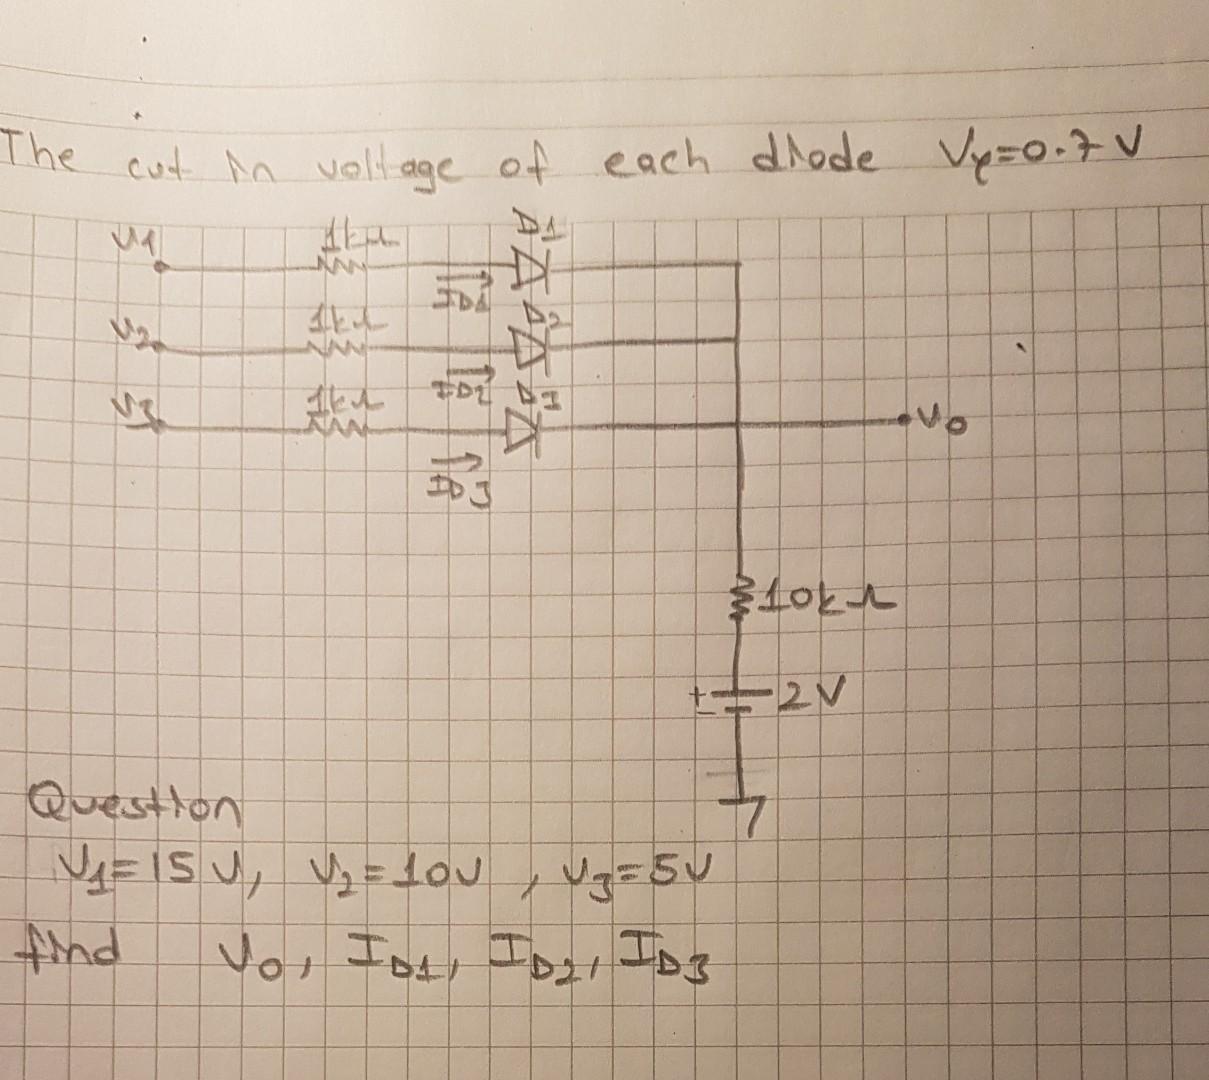 The cut in voltage of each diode Vγ=0.7 V
V1 1kΩ D1
ID1
V2 1kΩ D2
ID2
V3 1kΩ D3
ID3
Vo
10kΩ
+
- 2V
Question
V1=15V, V2=10V, V3=5V
find Vo, ID1, ID2, ID3